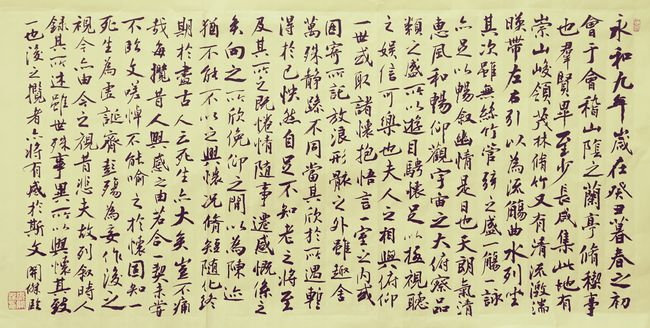 永和九年歲在癸丑暮春之初
會于會稽山陰之蘭亭脩稧事
也羣賢畢至少長咸集此地有
崇山峻領茂林脩竹又有清流激湍
暎帶左右引以為流觴曲水列坐
其次雖無絲竹管弦之盛一觴一詠
亦足以暢敘幽情是日也天朗氣清
惠風和暢仰觀宇宙之大俯察品
類之盛所以遊目騁懷足以極視聽
之娛信可樂也夫人之相與俯仰
一世或取諸懷抱悟言一室之內或
因寄所託放浪形骸之外雖趣舍
萬殊靜躁不同當其欣於所遇暫
得於己怏然自足不知老之將至
及其所之既惓情隨事遷感慨係之
矣向之所欣俛仰之間以為陳迹
猶不能不以之興懷況脩短隨化終
期於盡古人云死生亦大矣豈不痛
哉每攬昔人興感之由若合一契未嘗
不臨文嗟悼不能喻之於懷固知一
死生為虛誕齊彭殤為妄作後之
視今亦由今之視昔悲夫故列敘時人
錄其所述雖世殊事異所以興懷其致
一也後之攬者亦將有感於斯文